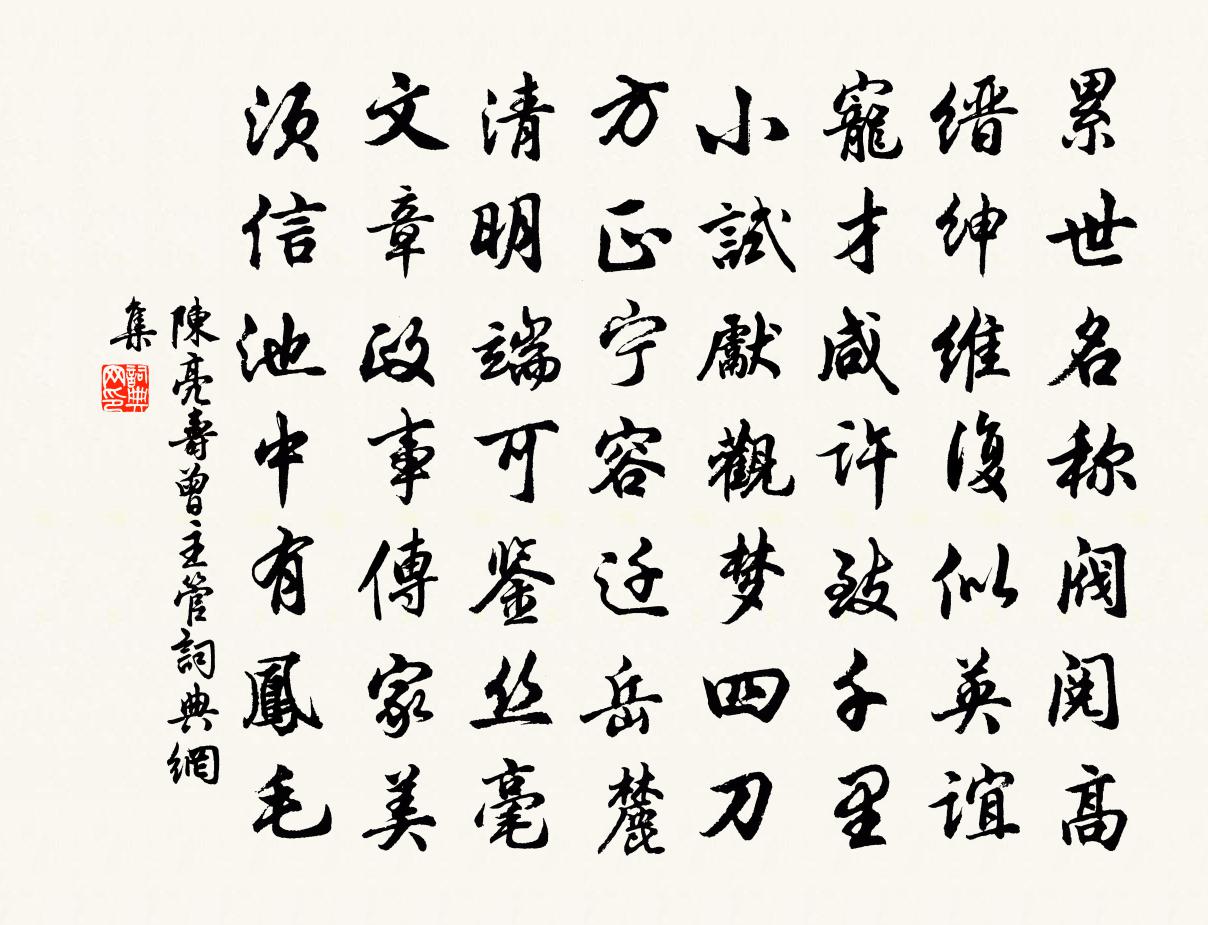 累世名称阀阅高
缙绅维復似英谊
寵才咸许致千里
小試獻觀梦四刀
方正宁容迁岳麓
清明端可鉴丝毫
文章政事傳家美
须信池中有鳳毛
陳亮壽曾主管詞典網
集
詞典
网印